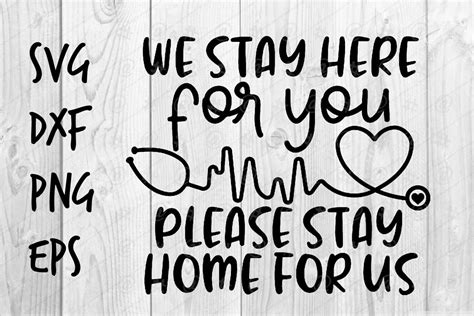 SVG
DXF
PNG
EPS
WE STAY HERE
for you
PLEASE STAY
HOME FOR US